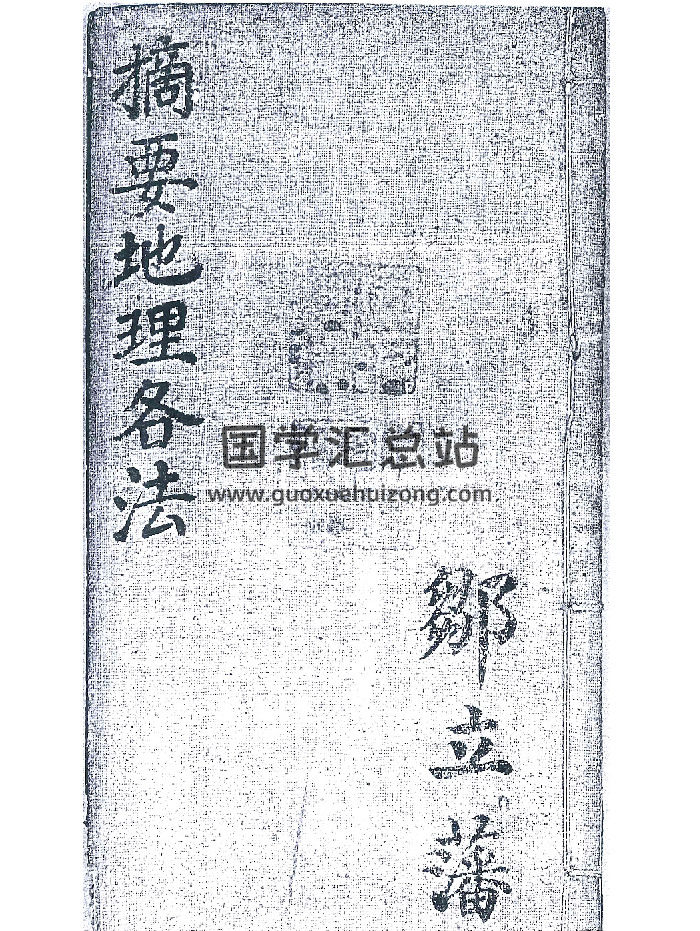 摘要地理各法
国学汇总站
www.guoxuehuizong.com
鄒立藩